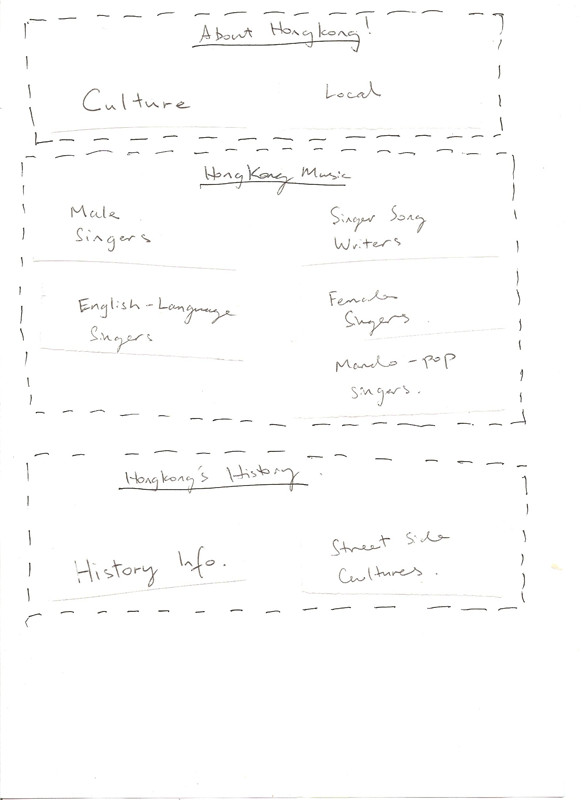 About Hongkong!
Culture
Local
HongKong Music
Male
Singers
Singer Song
Writers
English-Language
Singers
Female
Singers
Mando-pop
singers.
Hongkong's History
History Info.
Street Side
Cultures.